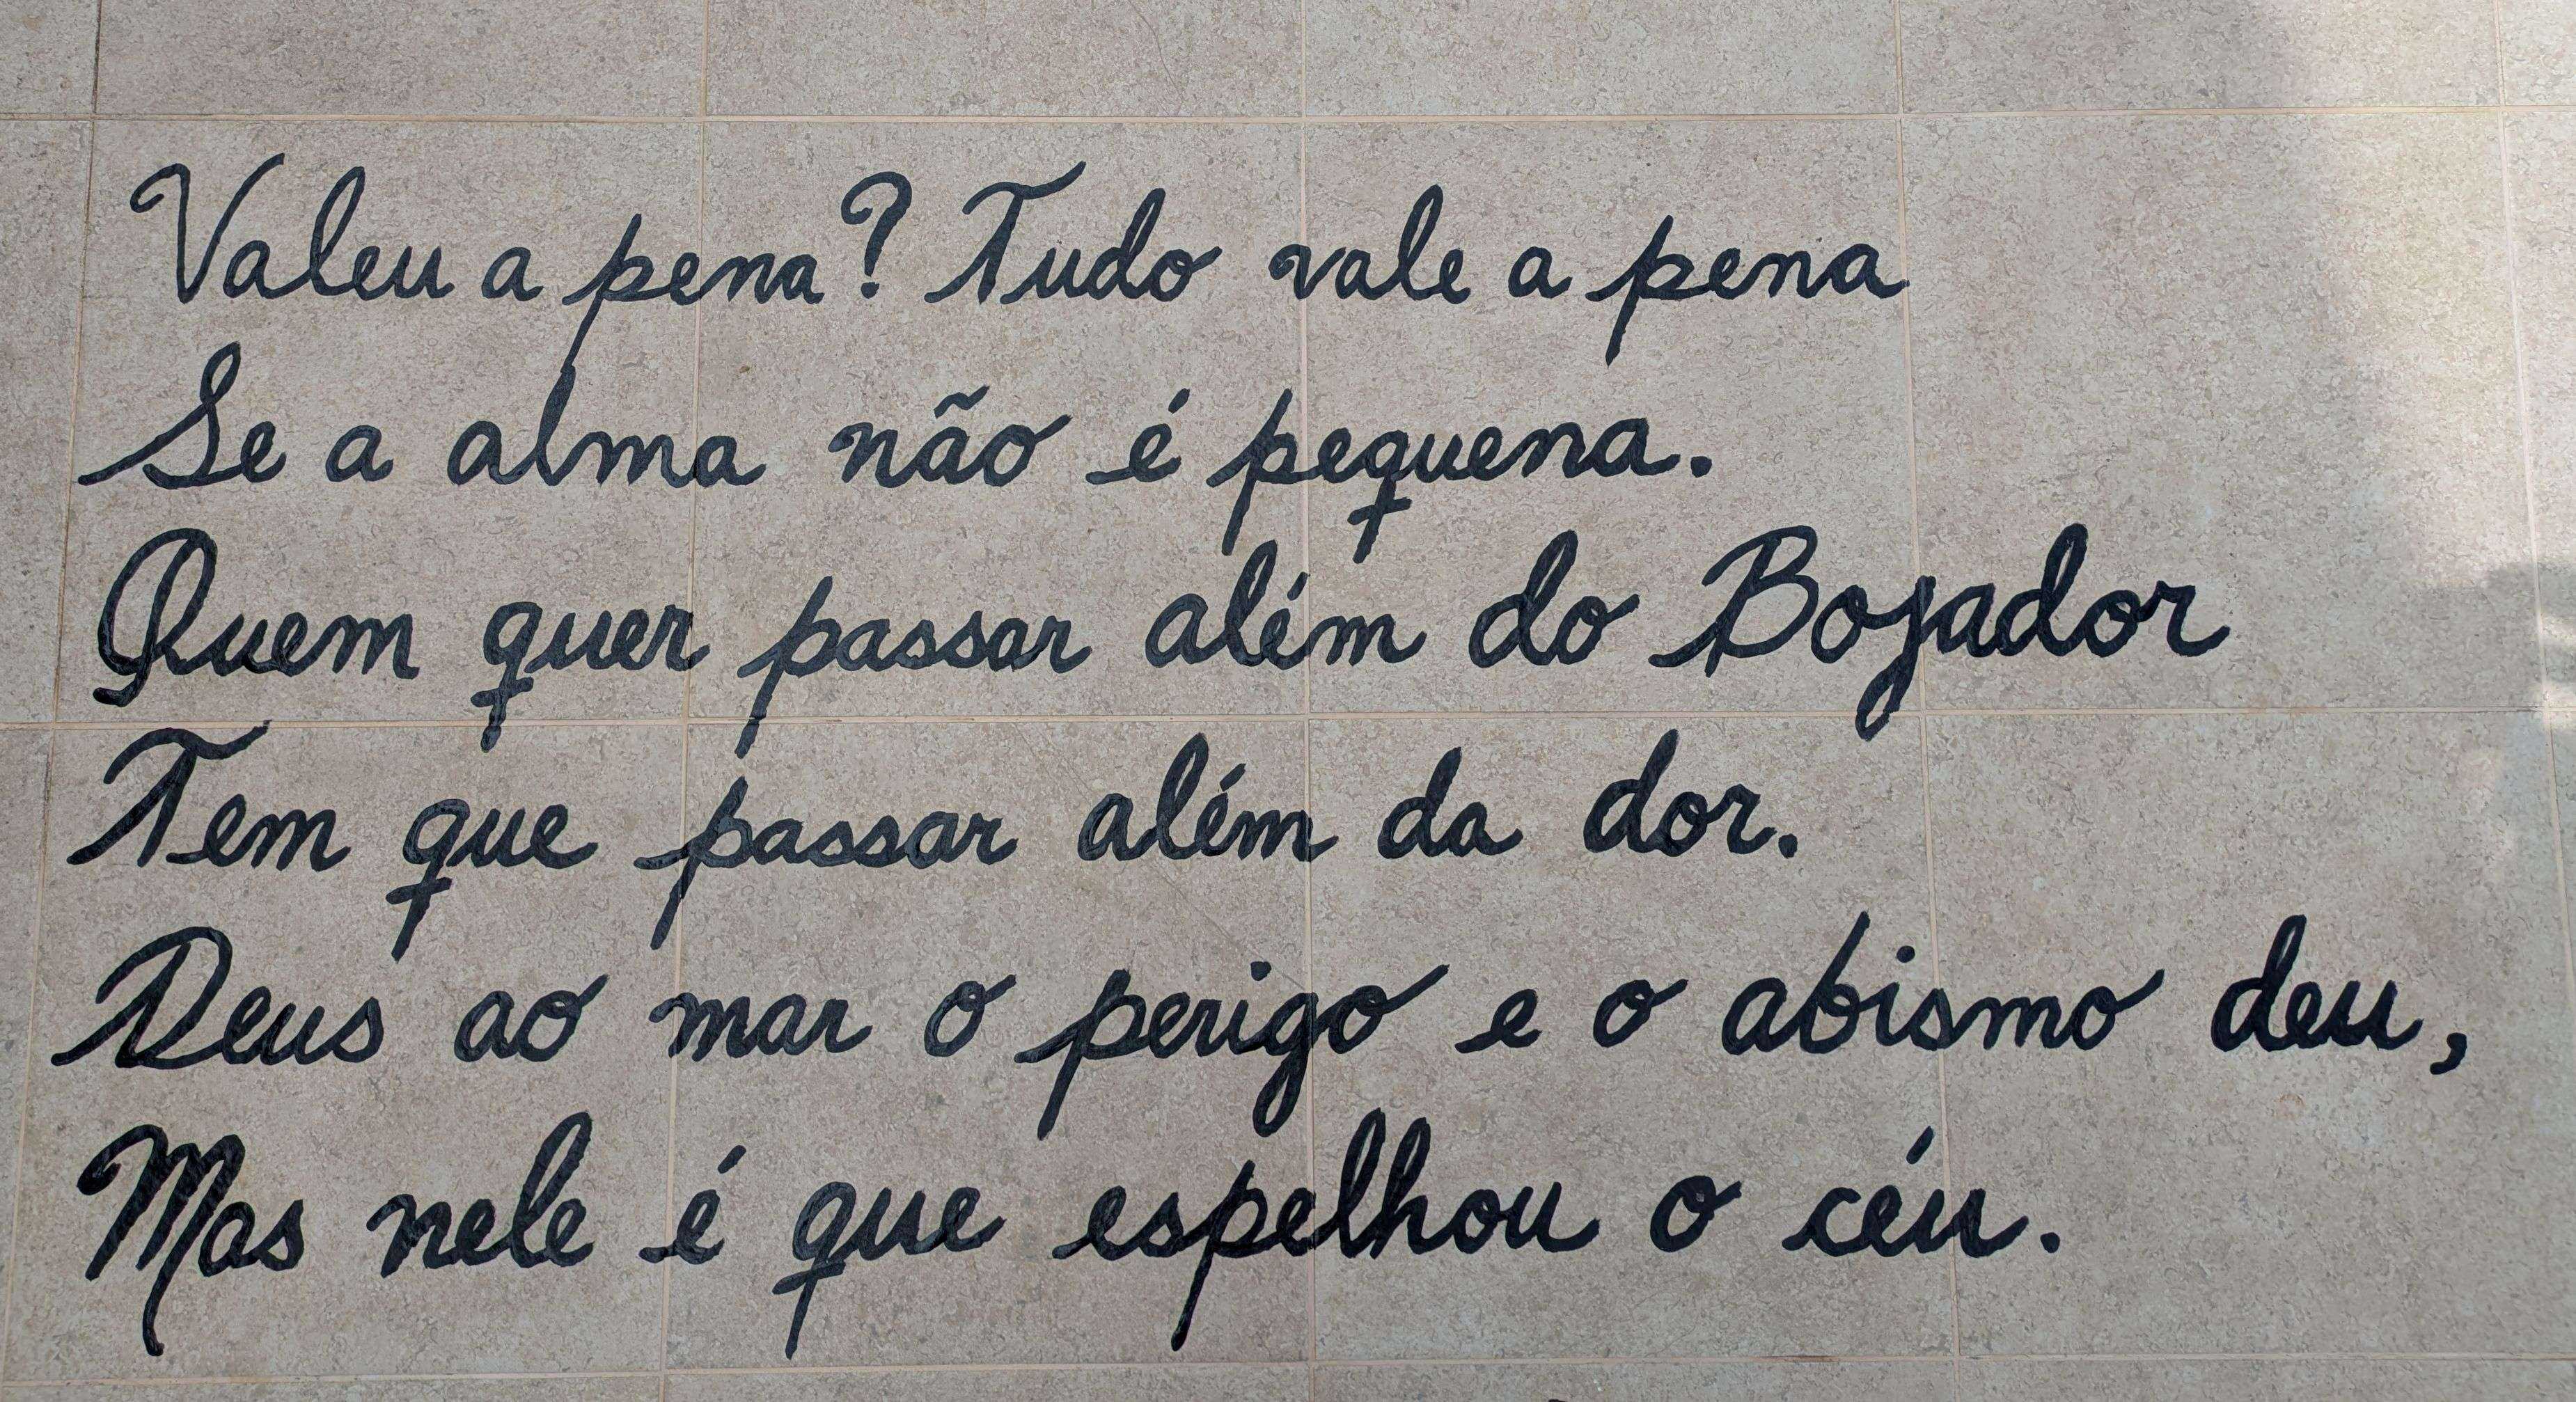 Valeu a pena? Tudo vale a pena
Se a alma não é pequena.
Quem quer passar além do Bojador
Tem que passar além da dor.
Deus ao mar o perigo e o abismo deu,
Mas nele é que espelhou o céu.